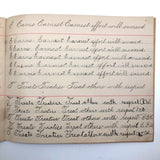 E Earne Earnest Earnest effort will succeed
E Earne Earnest Earnest effort will succeed
E Earne Earnest Earnest effort will succeed
E Earne Earnest Earnest effort will succeed
E Earne Earnest Earnest effort will succeed
E Earne Earnest Earnest effort will succeed
T Treats Treaties Treat others with respect
T Treats Treaties Treat others with respect
T Treats Treaties Treat others with respect
T Treats Treaties Treat others with respect
T Treats Treaties Treat others with respect
T Treats Treaties Treat others with respect